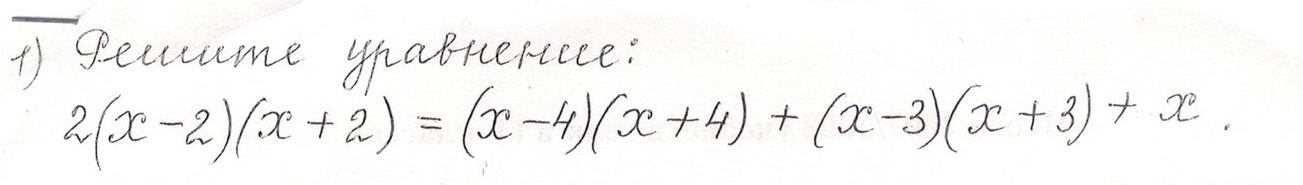 1) Решите уравнение:
2(x-2)(x+2) = (x-4)(x+4) + (x-3)(x+3) + x.